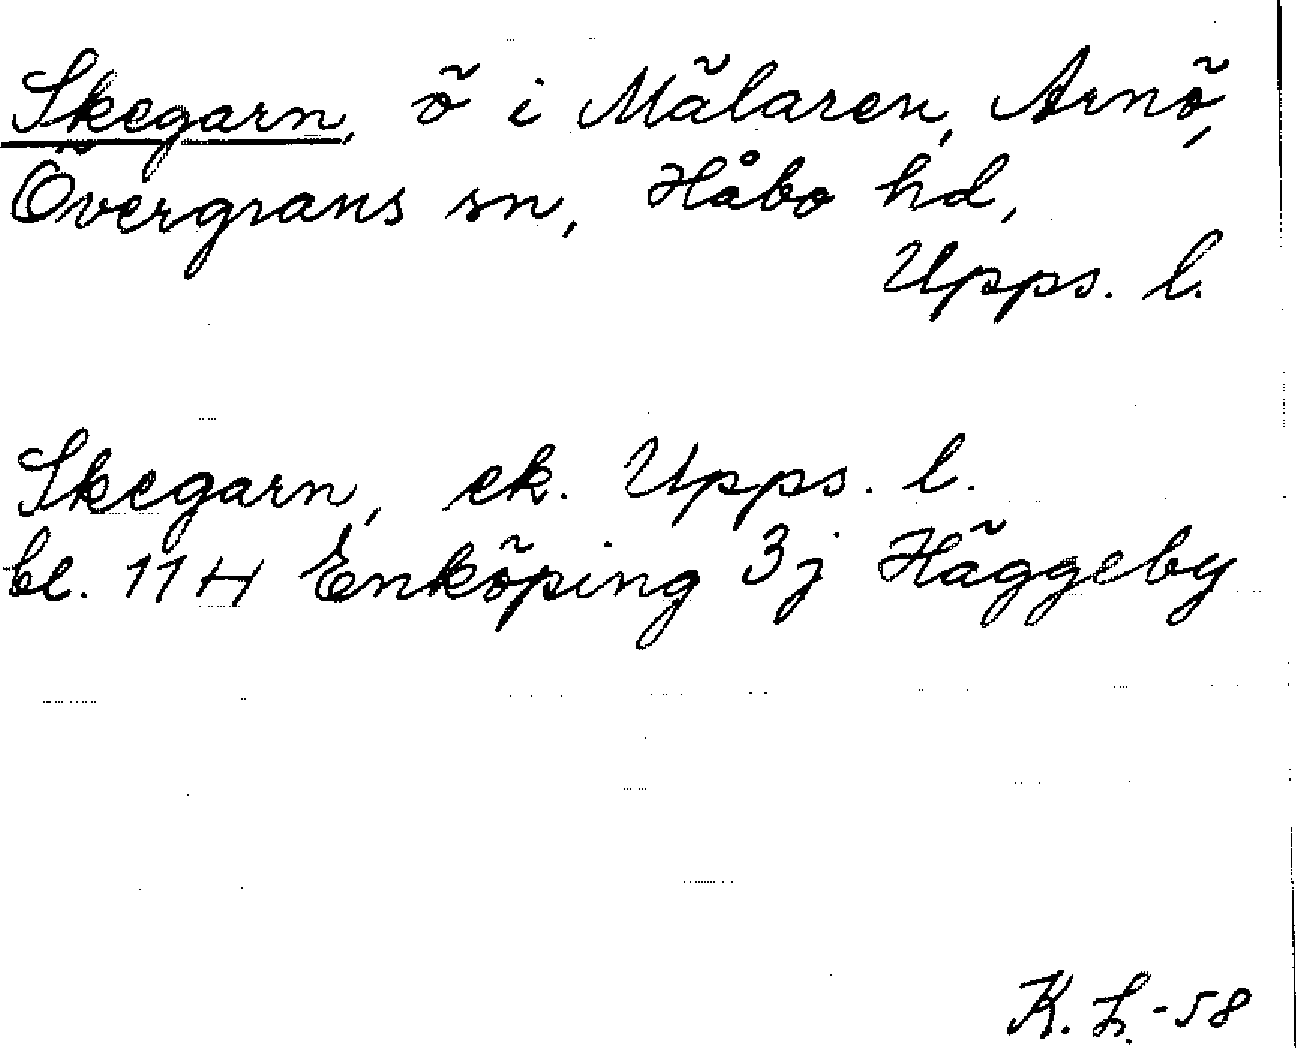 Skegarn, ö i Mälaren, Arnö,
Övergrans sn, Håbo hd,
Upps. l.
Skegarn, ek. Upps. l.
bl. 11 H Enköping 3j Häggeby
K. L. -58